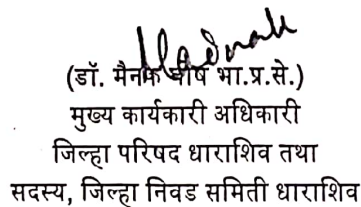 (डॉ. मैनाक घोष भा.प्र.से.)
मुख्य कार्यकारी अधिकारी
जिल्हा परिषद धाराशिव तथा
सदस्य, जिल्हा निवड समिती धाराशिव